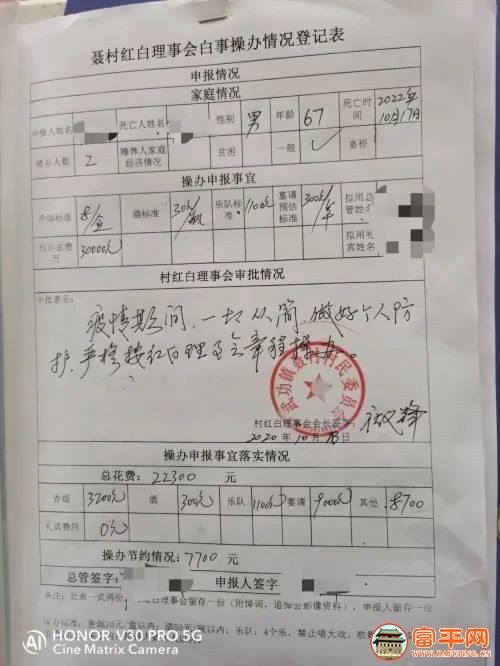 聂村红白理事会白事操办情况登记表
申报情况
家庭情况
申报人姓名 死亡人姓名 性别 男 年龄 67 死亡时间 2022年10月17日
赡养人数 2 赡养人家庭经济情况 贫困 一般 ✓ 富裕
操办申报事宜
香烟标准 8/盒 酒标准 30元/瓶 乐队标准 1100元 宴请预估标准 300元/桌 拟用总管姓名
预估总费用 30000元 拟用礼宾姓名
村红白理事会审批情况
审批意见:
疫情期间,一切从简,做好个人防
护,严格按红白理事会章程操办。
武功镇聂村村民委员会
村红白理事会会长签字:
2020年10月18日
操办申报事宜落实情况
总花费:22300 元
香烟 3200元 酒 300元 乐队 1100元 宴请 9000元 其他 8700
礼宾费用 0元
操办节约情况:7700 元
总管签字: 申报人签字
备注:此表一式两份, 理事会留存一份(附悼词、追悼会影像资料),申报人留存一份
操办标准:香烟10元/盒以内;酒50元/瓶以内;乐队:4个乐,禁止唱大戏、歌舞
HONOR V30 PRO 5G
Cine Matrix Camera
富平网
WWW.RAFUPING.CN